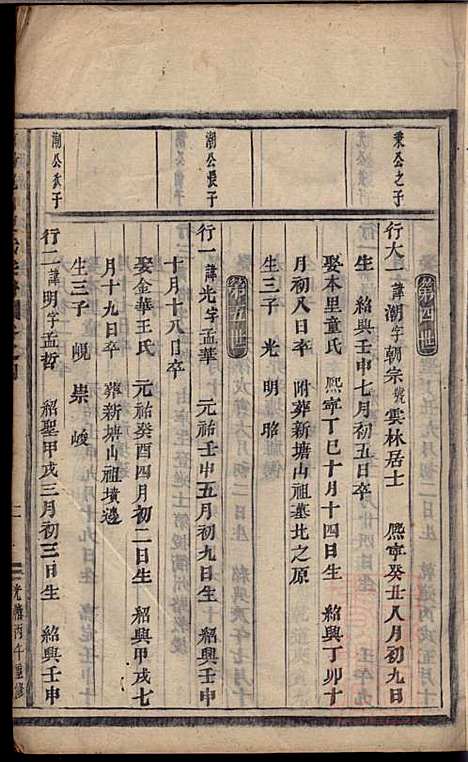 第四世
秉公之子
行大一 諱潮字朝宗號雲林居士 熙寧癸丑八月初九日
生 紹興壬申七月初五日卒
娶本里童氏 熙寧丁巳十月十四日生 紹興丁卯十
月初八日卒 附葬新塘山祖墓北之原
生三子 光 明 昭
第五世
潮公長子
行一 諱光字孟華 元祐壬申五月初九日生 紹興壬
十月十八日卒
娶金華王氏 元祐癸酉四月初二日生 紹興甲戌七
月十九日卒 葬新塘山祖墳邊
生三子 峴 崇 峻
潮公次子
行二 諱明字孟哲 紹聖甲戌三月初三日生 紹興壬申
光緒丙午重修